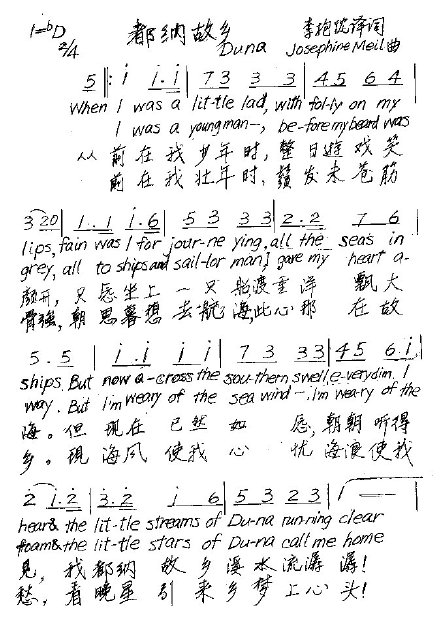 1=bD
2/4
都纳故乡
Duna
李抱忱译词
Josephine Meil曲
5 ‖: i i. i | 7 3 3 3 | 4 5 6 4 |
When I was a lit-tle lad, with fol-ly on my
I was a young man—, be-fore my beard was
从 前 在 我 少 年 时, 整 日 遊 戏 笑
前 在 我 壮 年 时, 鬚 发 未 苍 筋
3 20 | 1. 1 i. 6 | 5 3 3 3 | 2. 2 7 6 |
lips, fain was I for jour-ne ying, all the seas in
grey, all to ships and sail-lor man, gave my heart a-
颜开, 只 坐上 一 只 船渡重洋 飘 大
骨强, 朝 思暮想 去航海此心那 在 故
5. 5 | i. i i i | 7 3 3 3 | 4 5 6 i |
ships. But now a-cross the sou-thern swell, e-very dim. I
way. But I'm weary of the sea wind—, I'm wea-ry of the
海。但 现在 已然 如 朝朝 听得
乡。現 海风 使我 心 忧 海浪使我
2 i. 2 | 3. 2 i 6 | 5 3 2 3 | 1 — |
hear& the lit-tle streams of Du-na run-ning clear
foam& the lit-tle stars of Du-na call me home
見, 我都纳 故 乡溪水流潺 潺!
愁, 看晚星 引 来乡梦上心头!